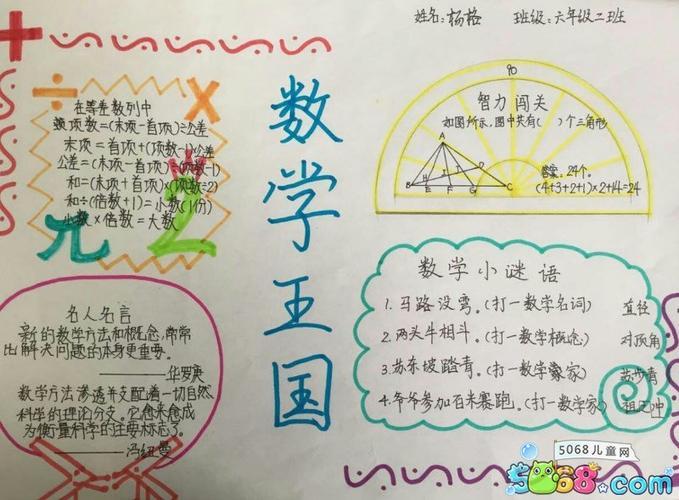 姓名:杨格 班级:六年级二班
数学王国
在等差数列中
项数=(末项-首项)÷公差
末项=首项+(项数-1)公差
公差=(末项-首项)=(项数-1)
和=(末项+首项)×(项数÷2)
和÷(倍数+1)=小数(1份)
小数×倍数=大数
π
90
智力闯关
如图所示,图中共有( )个三角形
A
B E F G C
H I J D
答案:24个。
(4+3+2+1)×2+14=24
名人名言
新的数学方法和概念,常常
比解决问题的本身更重要。
——华罗庚
数学方法渗透并支配着一切自然
科学的理论分支。它愈来愈成
为衡量科学的主要标志了。
——冯纽曼
数学小谜语
1.马路没弯。(打一数学名词) 直径
2.两头牛相斗。(打一数学概念) 对顶角
3.苏东坡踏青。(打一数学家) 苏步青
4.爷爷参加百米赛跑。(打一数学家) 祖冲
5068儿童网
5068.com